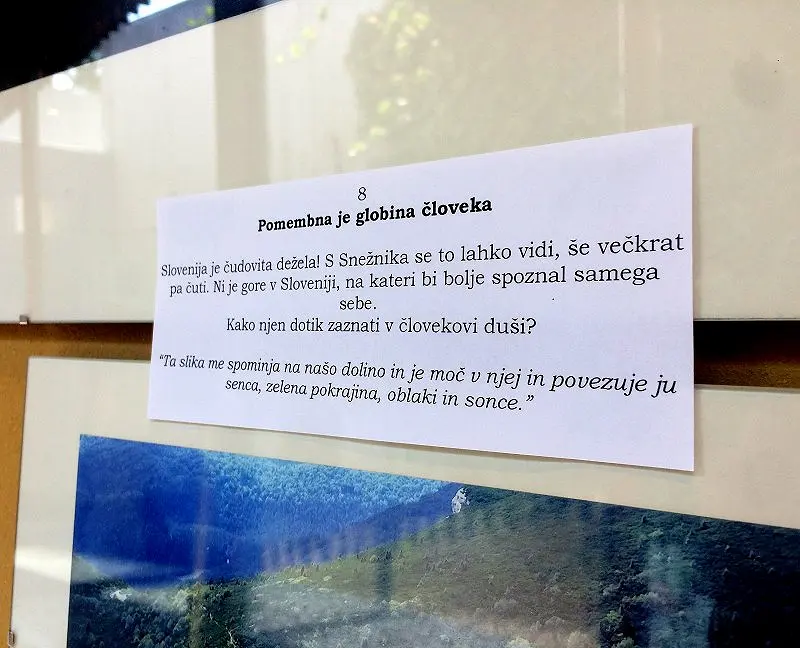 8
Pomembna je globina človeka
Slovenija je čudovita dežela! S Snežnika se to lahko vidi, še večkrat
pa čuti. Ni je gore v Sloveniji, na kateri bi bolje spoznal samega
sebe.
Kako njen dotik zaznati v človekovi duši?
"Ta slika me spominja na našo dolino in je moč v njej in povezuje ju
senca, zelena pokrajina, oblaki in sonce."